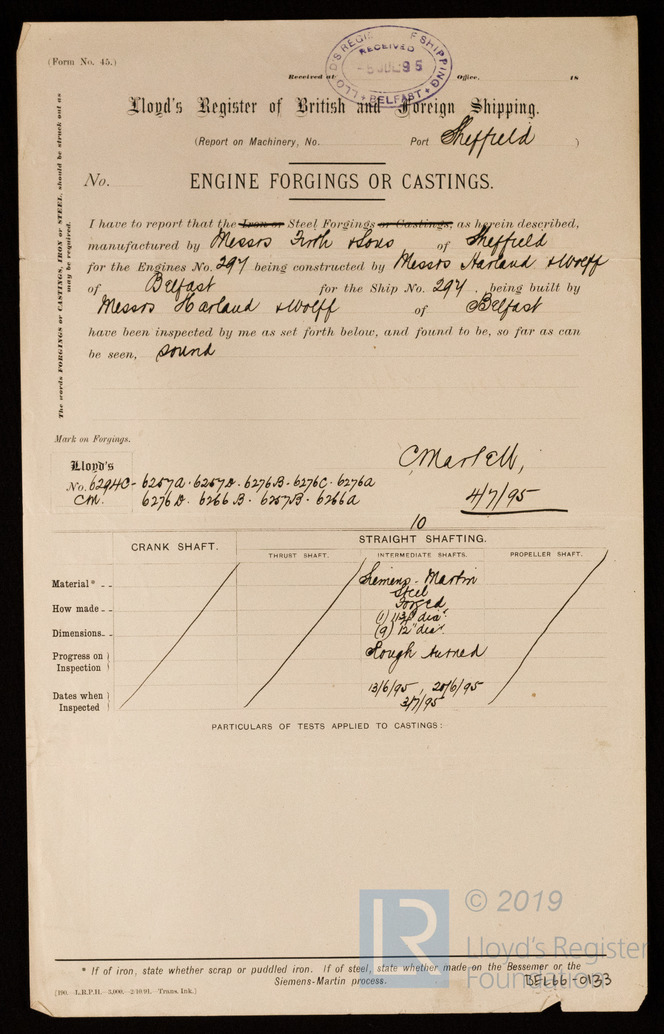 (Form No. 45.)
LLOYDS REGISTER OF SHIPPING
RECEIVED
-5 JUL 95
+ BELFAST +
Received at Office, 18
Lloyd's Register of British and Foreign Shipping.
(Report on Machinery, No. Port Sheffield )
No.
ENGINE FORGINGS OR CASTINGS.
The words FORGINGS or CASTINGS, IRON or STEEL, should be struck out as
may be required.
I have to report that the Iron or Steel Forgings or Castings, as herein described,
manufactured by Messrs Firth & Sons of Sheffield
for the Engines No. 297 being constructed by Messrs Harland & Wolff
of Belfast for the Ship No. 297, being built by
Messrs Harland & Wolff of Belfast
have been inspected by me as set forth below, and found to be, so far as can
be seen, sound
Mark on Forgings.
Lloyd's
No. 6294C - 6257A. 6257D. 6276B. 6276C. 6276A
CM. 6276D. 6266B. 6257B. 6266A
C Martell,
4/7/95
10
CRANK SHAFT.
STRAIGHT SHAFTING.
THRUST SHAFT. INTERMEDIATE SHAFTS. PROPELLER SHAFT.
Material* Siemens-Martin
Steel
How made Forged
Dimensions (1) dia
(9) 12" dia
Progress on Inspection Rough turned
Dates when Inspected 13/6/95, 20/6/95
3/7/95
PARTICULARS OF TESTS APPLIED TO CASTINGS:
© 2019
LR
Lloyd's Register
Foundation
* If of iron, state whether scrap or puddled iron. If of steel, state whether made on the Bessemer or the
Siemens-Martin process.
BEL66-0133
[190. L.R.P.H.—5,000.—2/10/91.—Trans. Ink.]